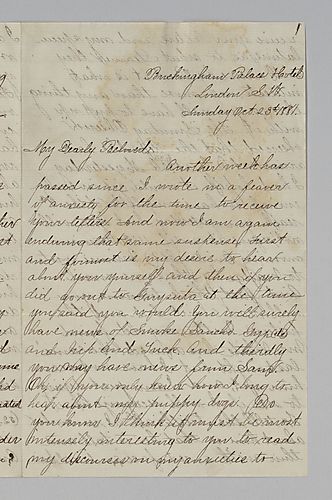 1
Buckingham Palace Hotel
London S.W.
Sunday Oct. 23d 1881.
My Dearly Beloved.
Another week has
passed since I wrote in a fever
of anxiety for the time to receive
your letters. And now I am again
enduring that same suspense. First
and foremost is my desire to hear
about your yourself and then if you
did go out to at the time
you said you would you will surely
have news of Smoke
and Kick and Tuck, and thirdly
you may have news from
Oh, if you only knew how I long to
hear about my puppy dogs. Do
you know I think it must be most
intensely interesting to you to read
my discourses on my anxieties to